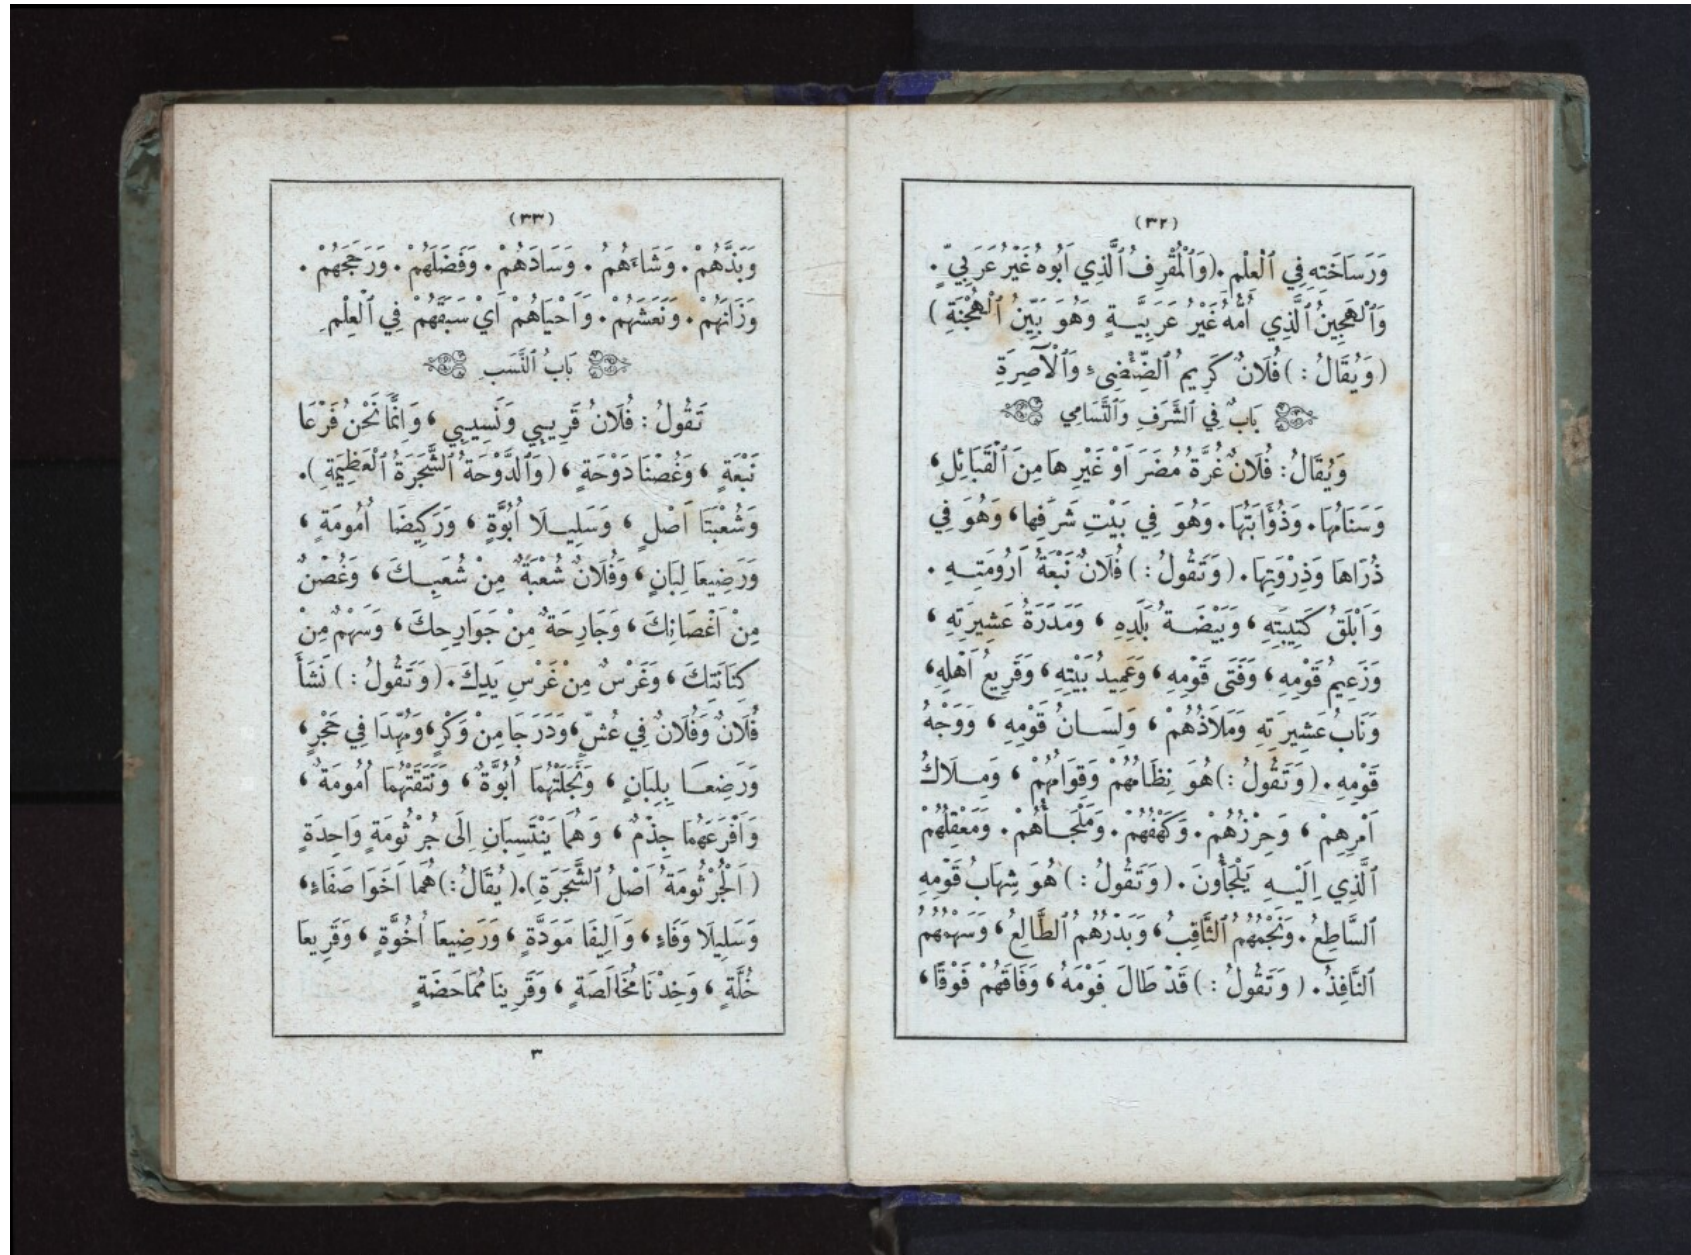 (٣٢)
وَرَسَاخَتِهِ فِي ٱلْعِلْمِ . (وَٱلْمُقْرِفُ ٱلَّذِي اَبُوهُ غَيْرُ عَرَبِيٍّ .
وَٱلْهَجِينُ ٱلَّذِي اُمُّهُ غَيْرُ عَرَبِيَّةٍ وَهُوَ بَيِّنُ ٱلْهُجْنَةِ )
( وَيُقَالُ : ) فُلَانٌ كَرِيمُ ٱلضِّئْضِىءِ وَٱلْآصِرَةِ
بَابٌ فِي ٱلشَّرَفِ وَٱلتَّسَامِي
وَيُقَالُ : فُلَانٌ غُرَّةُ مُضَرَ اَوْ غَيْرِهَا مِنَ ٱلْقَبَائِلِ ،
وَسَنَامُهَا . وَذُؤَابَتُهَا . وَهُوَ فِي بَيْتِ شَرَفِهَا ، وَهُوَ فِي
ذُرَاهَا وَذِرْوَتِهَا . ( وَتَقُولُ : ) فُلَانٌ نَبْعَةُ اَرُومَتِهِ .
وَاَبْلَقُ كَتِيبَتِهِ ، وَبَيْضَةُ بَلَدِهِ ، وَمَدَرَةُ عَشِيرَتِهِ ،
وَزَعِيمُ قَوْمِهِ ، وَفَتَى قَوْمِهِ ، وَعَمِيدُ بَيْتِهِ ، وَقَرِيعُ اَهْلِهِ ،
وَنَابُ عَشِيرَتِهِ وَمَلَاذُهُمْ ، وَلِسَانُ قَوْمِهِ ، وَوَجْهُ
قَوْمِهِ . ( وَتَقُولُ : ) هُوَ نِظَامُهُمْ وَقِوَامُهُمْ ، وَمِلَاكُ
اَمْرِهِمْ ، وَحِرْزُهُمْ . وَكَهْفُهُمْ . وَمَلْجَأُهُمْ . وَمَعْقِلُهُمْ
ٱلَّذِي اِلَيْهِ يَلْجَأُونَ . ( وَتَقُولُ : ) هُوَ شِهَابُ قَوْمِهِ
ٱلسَّاطِعُ . وَنَجْمُهُمُ ٱلثَّاقِبُ ، وَبَدْرُهُمُ ٱلطَّالِعُ ، وَسَهْمُهُمُ
ٱلنَّافِذُ . ( وَتَقُولُ : ) قَدْ طَالَ قَوْمَهُ ، وَفَاقَهُمْ فَوْقًا ،
(٣٣)
وَبَذَّهُمْ . وَشَاءَهُمْ . وَسَادَهُمْ . وَفَضَلَهُمْ . وَرَجَحَهُمْ .
وَزَانَهُمْ . وَنَعَشَهُمْ . وَاَحْيَاهُمْ اَيْ سَبَقَهُمْ فِي ٱلْعِلْمِ
بَابُ ٱلنَّسَبِ
تَقُولُ : فُلَانٌ قَرِيبِي وَنَسِيبِي ، وَاِنَّمَا نَحْنُ فَرْعَا
نَبْعَةٍ ، وَغُصْنَا دَوْحَةٍ ، ( وَٱلدَّوْحَةُ ٱلشَّجَرَةُ ٱلْعَظِيمَةِ ) .
وَشُعْبَتَا اَصْلٍ ، وَسَلِيلَا اُبُوَّةٍ ، وَرَكِيضَا اُمُومَةٍ ،
وَرَضِيعَا لِبَانٍ ، وَفُلَانٌ شُعْبَةٌ مِنْ شُعَبِكَ ، وَغُصْنٌ
مِنْ اَغْصَانِكَ ، وَجَارِحَةٌ مِنْ جَوَارِحِكَ ، وَسَهْمٌ مِنْ
كِنَانَتِكَ ، وَغَرْسٌ مِنْ غَرْسِ يَدِكَ . ( وَتَقُولُ : ) نَشَأَ
فُلَانٌ وَفُلَانٌ فِي عُشٍّ ، وَدَرَجَا مِنْ وَكْرٍ ، وَمُهِّدَا فِي حَجْرٍ ،
وَرَضِعَا بِلِبَانٍ ، وَنَجَلَتْهُمَا اُبُوَّةٌ ، وَنَتَقَتْهُمَا اُمُومَةٌ ،
وَاَفْرَعَهُمَا جِذْمٌ ، وَهُمَا يَنْتَسِبَانِ اِلَى جُرْثُومَةٍ وَاحِدَةٍ
( اَلْجُرْثُومَةُ اَصْلُ ٱلشَّجَرَةِ ) . ( يُقَالُ : ) هُمَا اَخَوَا صَفَاءٍ ،
وَسَلِيلَا وَفَاءٍ ، وَاَلِيفَا مَوَدَّةٍ ، وَرَضِيعَا اُخُوَّةٍ ، وَقَرِيعَا
خُلَّةٍ ، وَخِدْنَا مُخَالَصَةٍ ، وَقَرِينَا مُمَاحَضَةٍ
٣